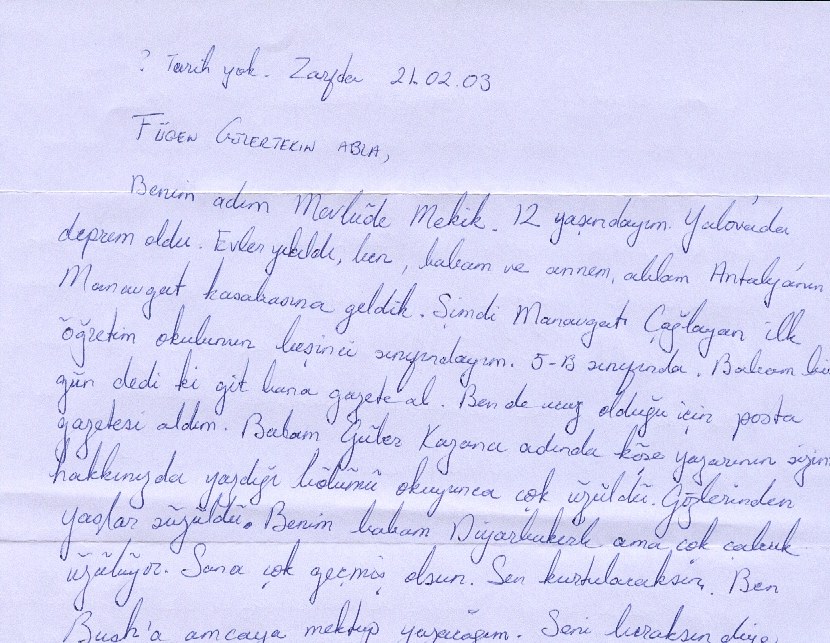 ? Tarih yok. Zarfda 21.02.03
FÜGEN GÜLERTEKİN ABLA,
Benim adım Mevlüde Mekik. 12 yaşındayım. Yalova'da
deprem oldu. Evler yıkıldı, ben, babam ve annem, ablam Antalya'nın
Manavgat kasabasına geldik. Şimdi Manavgat Çağlayan ilk
öğretim okulunun beşinci sınıfındayım. 5-B sınıfında. Babam bir
gün dedi ki git bana gazete al. Ben de ucuz olduğu için posta
gazetesi aldım. Babam Güler Kazmacı adında köşe yazarının sizin
hakkınızda yazdığı bölümü okuyunca çok üzüldü. Gözlerinden
yaşlar süzüldü. Benim babam Diyarbakırlı ama çok çabuk
üzülüyor. Sana çok geçmiş olsun. Sen kurtulacaksın. Ben
Bush'a amcaya mektup yazacağım. Seni bıraksın diye.